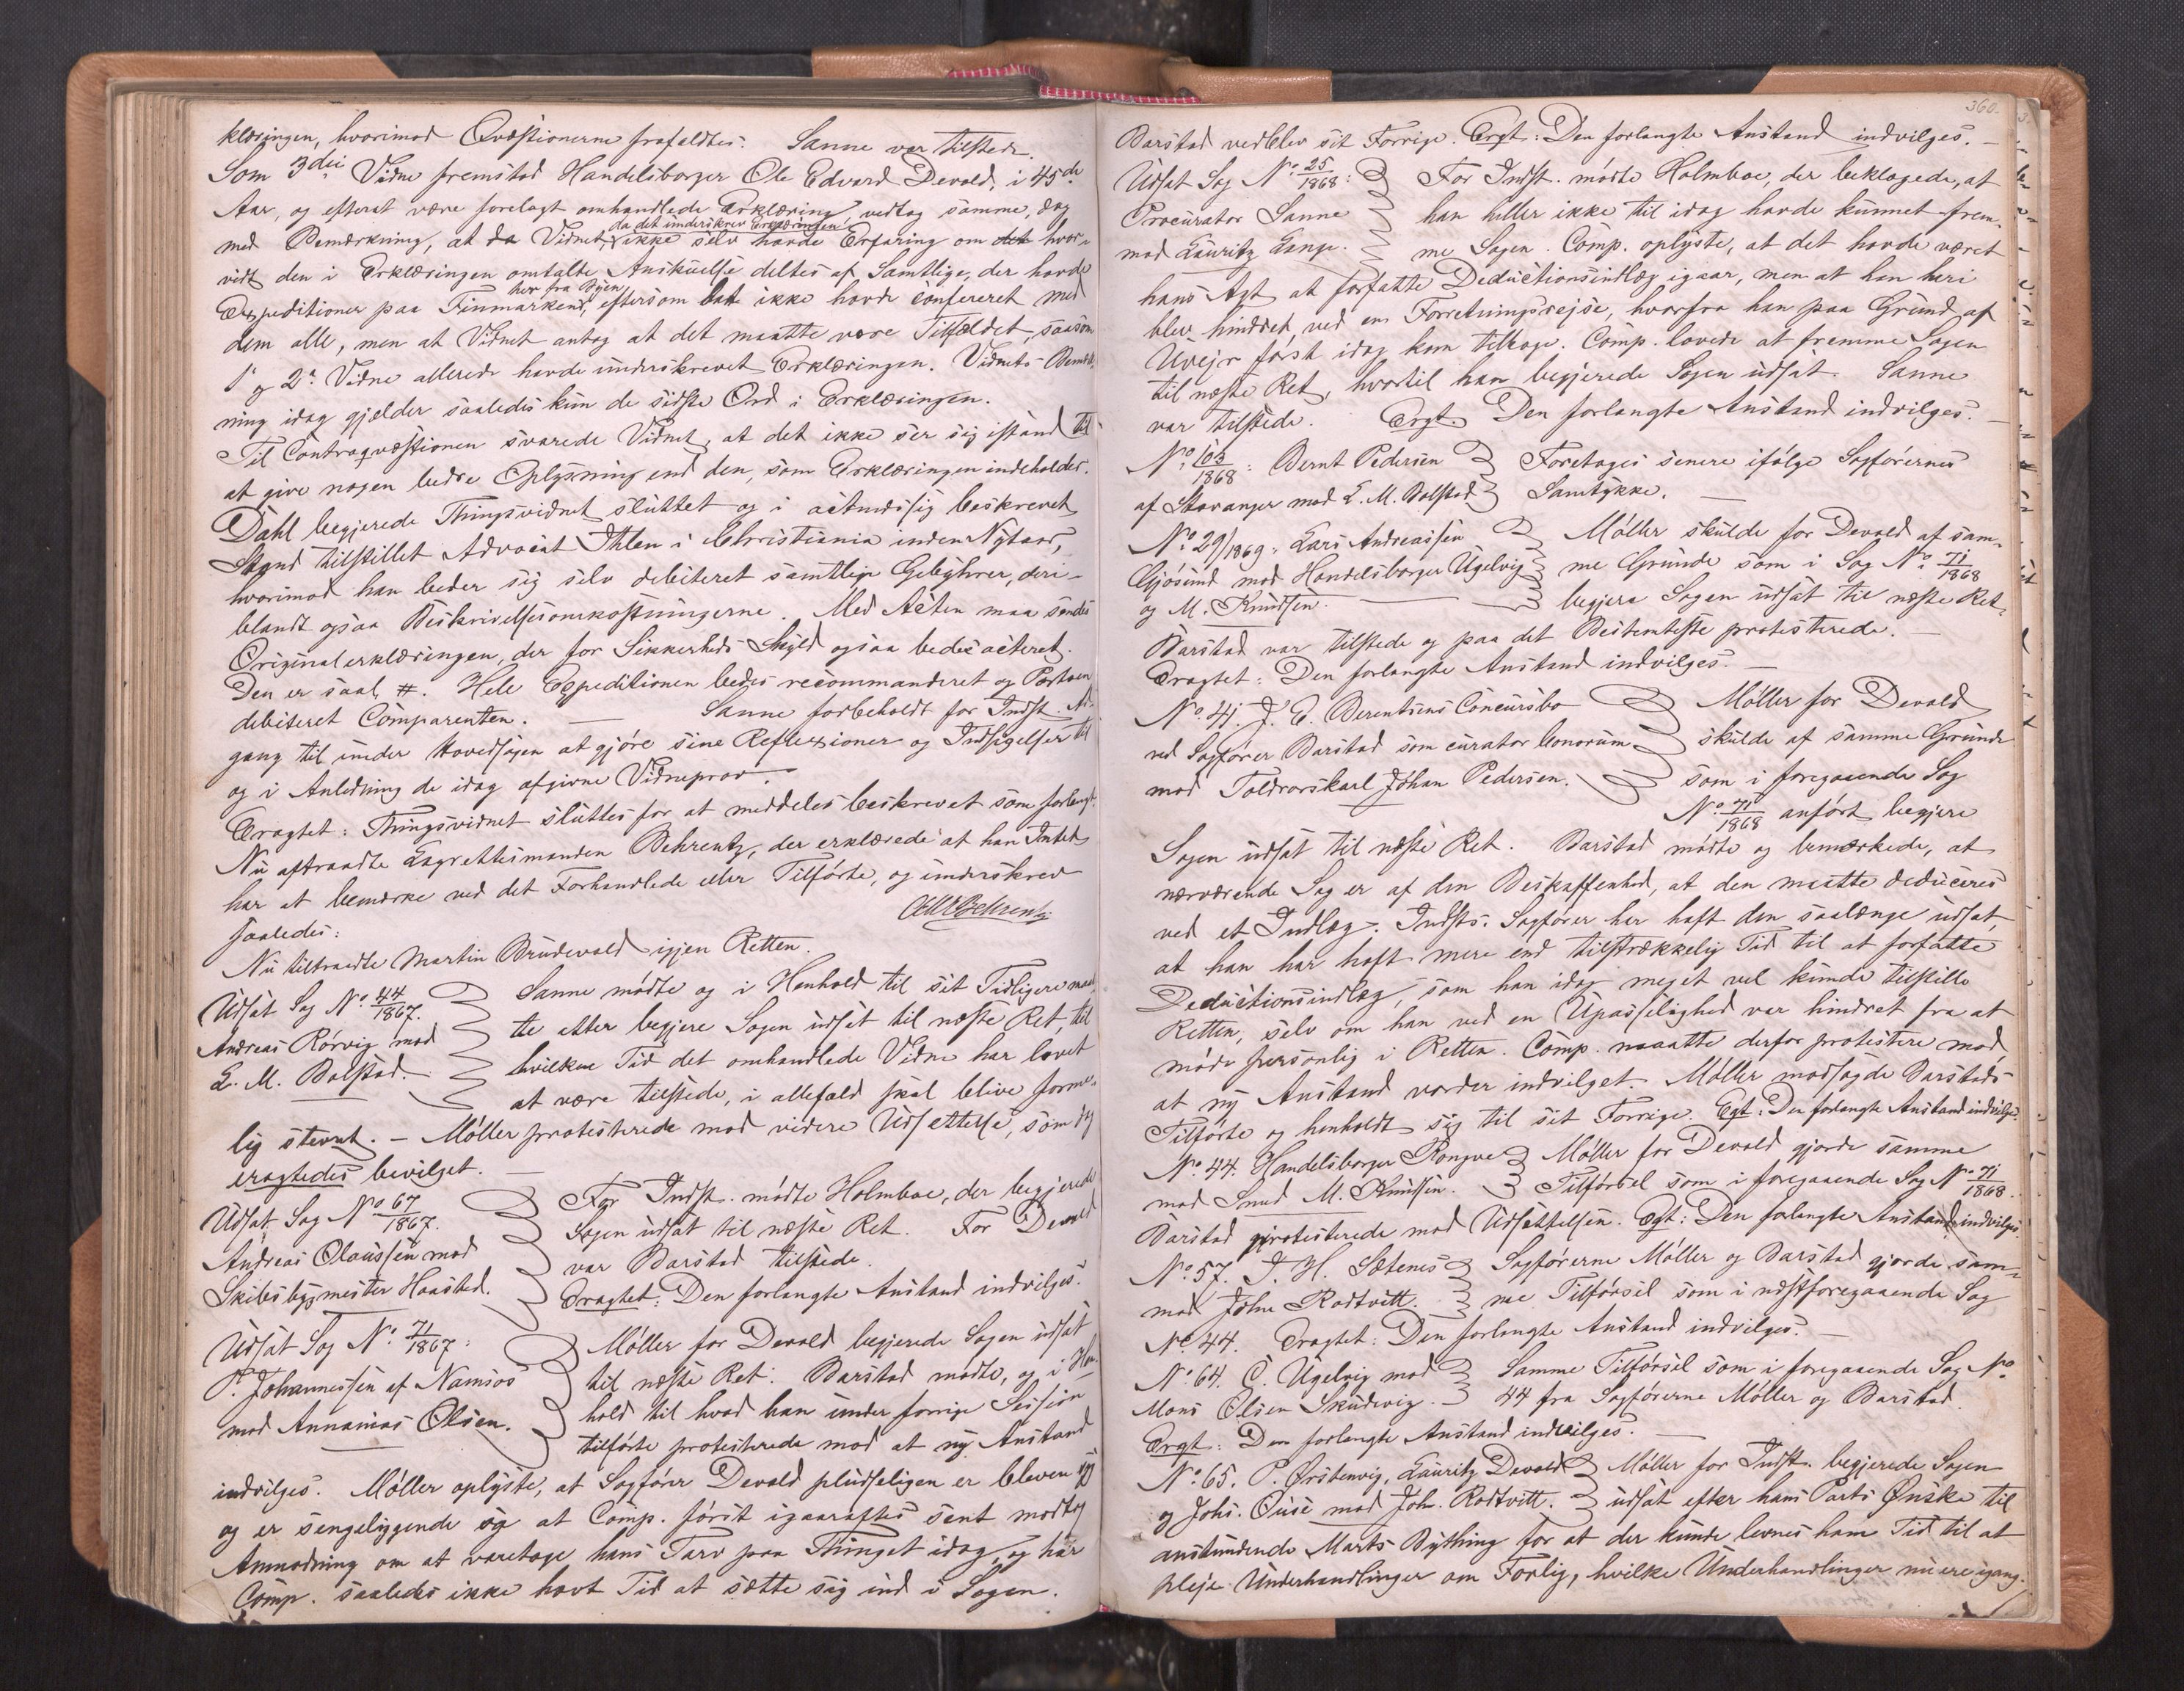 klæringen, hvorimod Qvæstionerne frafaldtes. Sanne var tilstede.
Som 3die Vidne fremstod Handelsborger Ole Edvard Devold, i 45de
Aar, og efterat være forelagt omhandlede Erklæring, vedtog samme, dog
da det underskrev Erklæringen
med Bemærkning, at da Vidnet, ikke selv havde Erfaring om det hvor-
vidt den i Erklæringen omtalte Anskuelse deltes af Samtlige, der havde
her fra Byen
Expeditioner paa Finmarken, eftersom det ikke havde confereret med
dem alle, men at Vidnet antog at det maatte være Tilfældet, saasom
1ste og 2det Vidne allerede havde underskrevet Erklæringen. Vidnets Bemærk-
ning idag gjælder saaledes kun de sidste Ord i Erklæringen.
Til Contraqvæstionen svarede Vidnet, at det ikke ser sig istand til
at give nogen bedre Oplysning end den, som Erklæringen indeholder.
Dahl begjerede Thingsvidnet sluttet og i actmæssig beskrevet
Stand tilstillet Advocat Ihlen i Christiania inden Nytaar,
hvorimod han beder sig selv debiteret samtlige Gebyhrer, deri-
blandt ogsaa Beskrivelsesomkostningerne. Med Acten maa sendes
Originalerklæringen, der for Sikkerheds Skyld ogsaa bedes acteret.
Den er saal. #. Hele Expeditionen bedes recommanderet og Portoen
debiteret Comparenten. — Sanne forbeholdt for Indst. Ad-
gang til under Hovedsagen at gjøre sine Reflexioner og Indsigelser til
og i Anledning de idag afgivne Vidneprov.
Eragtet: Thingsvidnet sluttes for at meddeles beskrevet som forlangt.
Nu aftraadte Lagrettesmanden Behrentz, der erklærede at han Intet
har at bemærke ved det Forhandlede eller Tilførte, og underskrev
saaledes:
Behrentz
Nu tiltraadte Martin Brudevold igjen Retten.
Udsat Sag No 44/1867.
Andreas Rørvig mod
L. M. Bolstad.
Sanne mødte og i Henhold til sit Tidligere maat-
te atter begjere Sagen udsat til næste Ret, til
hvilken Tid det omhandlede Vidne har lovet
at være tilstede, i allefald skal blive forme-
lig stevnt. – Møller protesterede mod videre Udsættelse, som dog
eragtedes bevilget. —
Udsat Sag No 67/1867.
Andreas Olaussen mod
Skibsbygmester Haasted.
For Indst. mødte Holmboe, der begjerede
Sagen udsat til næste Ret. For Devold
var Barstad tilstede.
Eragtet: Den forlangte Anstand indvilges.
Udsat Sag No 71/1867:
P. Johannessen af Namsos
mod Annanias Olsen.
Møller for Devold begjerede Sagen udsat
til næste Ret. Barstad mødte, og i Hen-
hold til hvad han under forrige Session
tilførte protesterede mod at ny Anstand
indvilges. Møller oplyste, at Sagfører Devold pludseligen er bleven syg
og er sengeliggende og at Comp. først igaaraftes sent modtog
Anmodning om at varetage hans Tarv paa Thinget idag, og har
Comp. saaledes ikke havt Tid at sætte sig ind i Sagen.
360.
Barstad vedblev sit Forrige. Eragt: Den forlangte Anstand indvilges. —
Udsat Sag No 25/1868:
Procurator Sanne
mod Lauritz Lange.
For Indst. mødte Holmboe, der beklagede, at
han heller ikke til idag havde kunnet frem-
me Sagen. Comp. oplyste, at det havde været
hans Agt at forfatte Deductionsindlæg igaar, men at han heri
blev hindret, ved en Forretningsrejse, hvorfra han paa Grund af
Uvejr først idag kom tilbage. Comp. lovede at fremme Sagen
til næste Ret, hvortil han begjerede Sagen udsat. Sanne
var tilstede. Eragt. Den forlangte Anstand indvilges. —
No 103/1868: Bernt Pedersen
af Stavanger mod L. M. Bolstad
Foretages senere ifølge Sagførernes
Samtykke. —
No 29/1869: Lars Andreassen
Gjøsund mod Handelsborger Ugelvig
og M. Knudsen. —
Møller skulde for Devold af sam-
me Grunde som i Sag No 71/1868
begjere Sagen udsat til næste Ret.
Barstad var tilstede og paa det Bestemteste protesterede. —
Eragtet: Den forlangte Anstand indvilges. —
No 41. J. E. Berentsens Concursbo
ved Sagfører Barstad som curator bonorum
mod Toldrorskarl Johan Pedersen.
Møller for Devold
skulde af samme Grunde
som i foregaaende Sag
No 71/1868 anført begjere
Sagen udsat til næste Ret. Barstad mødte og bemærkede, at
nærværende Sag er af den Beskaffenhed, at den maatte deduceres
ved et Indlæg. Indsts. Sagfører har haft den saalænge udsat,
at han har haft mere end tilstrækkelig Tid til at forfatte
Deductionsindlæg, som han idag meget vel kunde tilstille
Retten, selv om han ved en Upasselighed var hindret fra at
møde personlig i Retten. Comp. maatte derfor protestere mod,
at ny Anstand vorder indvilget. Møller modsagde Barstads
Tilførte og henholdt sig til sit Forrige. Egt: Den forlangte Anstand indvilges.
No 44. Handelsborger Rongve
mod Smed M. Knudsen.
Møller for Devold gjorde samme
Tilførsel som i foregaaende Sag No 71/1868.
Barstad protesterede mod Udsættelsen. Egt: Den forlangte Anstand indvilges.
No 57. J. H. Sætenes
mod John Rodtvitt.
Sagførerne Møller og Barstad gjorde sam-
me Tilførsel som i næstforegaaende Sag
No 44. Eragtet: Den forlangte Anstand indvilges. —
No 64. C. Ugelvig mod
Mons Olsen Skudevig.
Samme Tilførsel som i foregaaende Sag No
44 fra Sagførerne Møller og Barstad.
Eragt: Den forlangte Anstand indvilges. —
No 65. P. Ørstenvig, Lauritz Devold
og Johs. Buse mod Joh. Rodtvitt.
Møller for Indst. begjerede Sagen
udsat efter hans Parts Ønske til
anstundende Marts Bything for at der kunde levnes ham Tid til at
pleje Underhandlinger om Forlig, hvilke Underhandlinger nu ere igang.